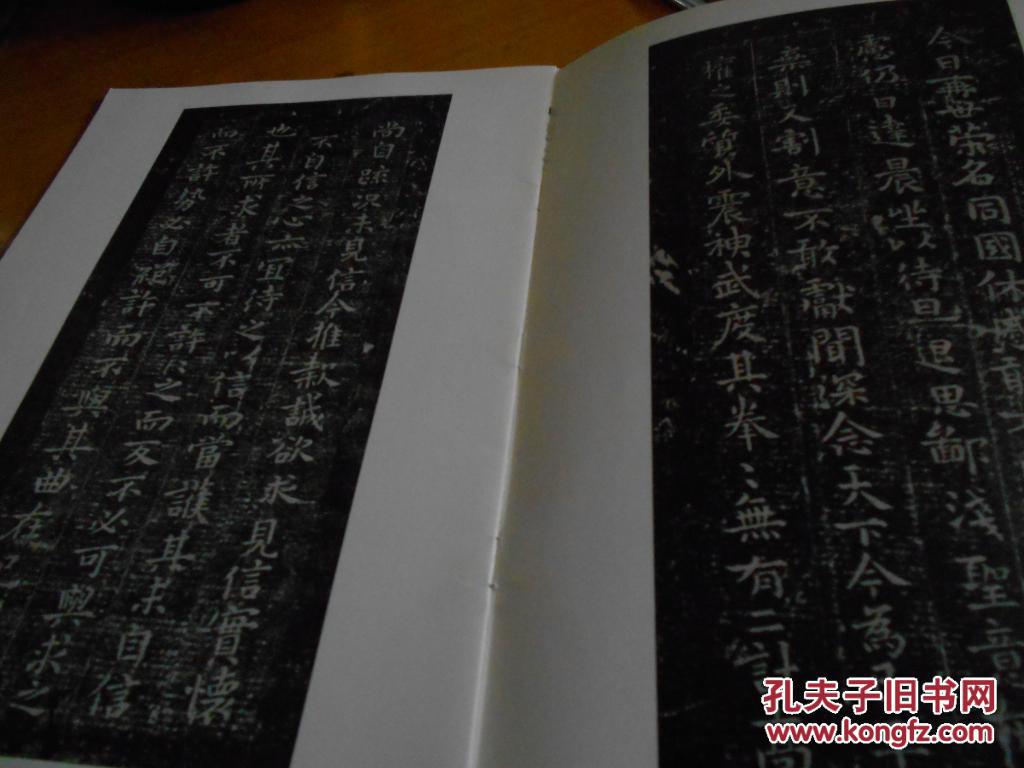 今日再世荣名同國休慼敢
慮仍日達晨坐以待旦退思鄙淺聖意
棄則又割意不敢獻聞深念天下今為
權之委質外震神武度其拳〻無有二計高
尚自疎况未見信今推款誠欲求見信實懷
不自信之心亦宜待之以信而當護其未自信
也其所求者不可不許〻之而反不必可與求之
而不許勢必自絕許而不與其曲在己
孔夫子旧书网
www.kongfz.com